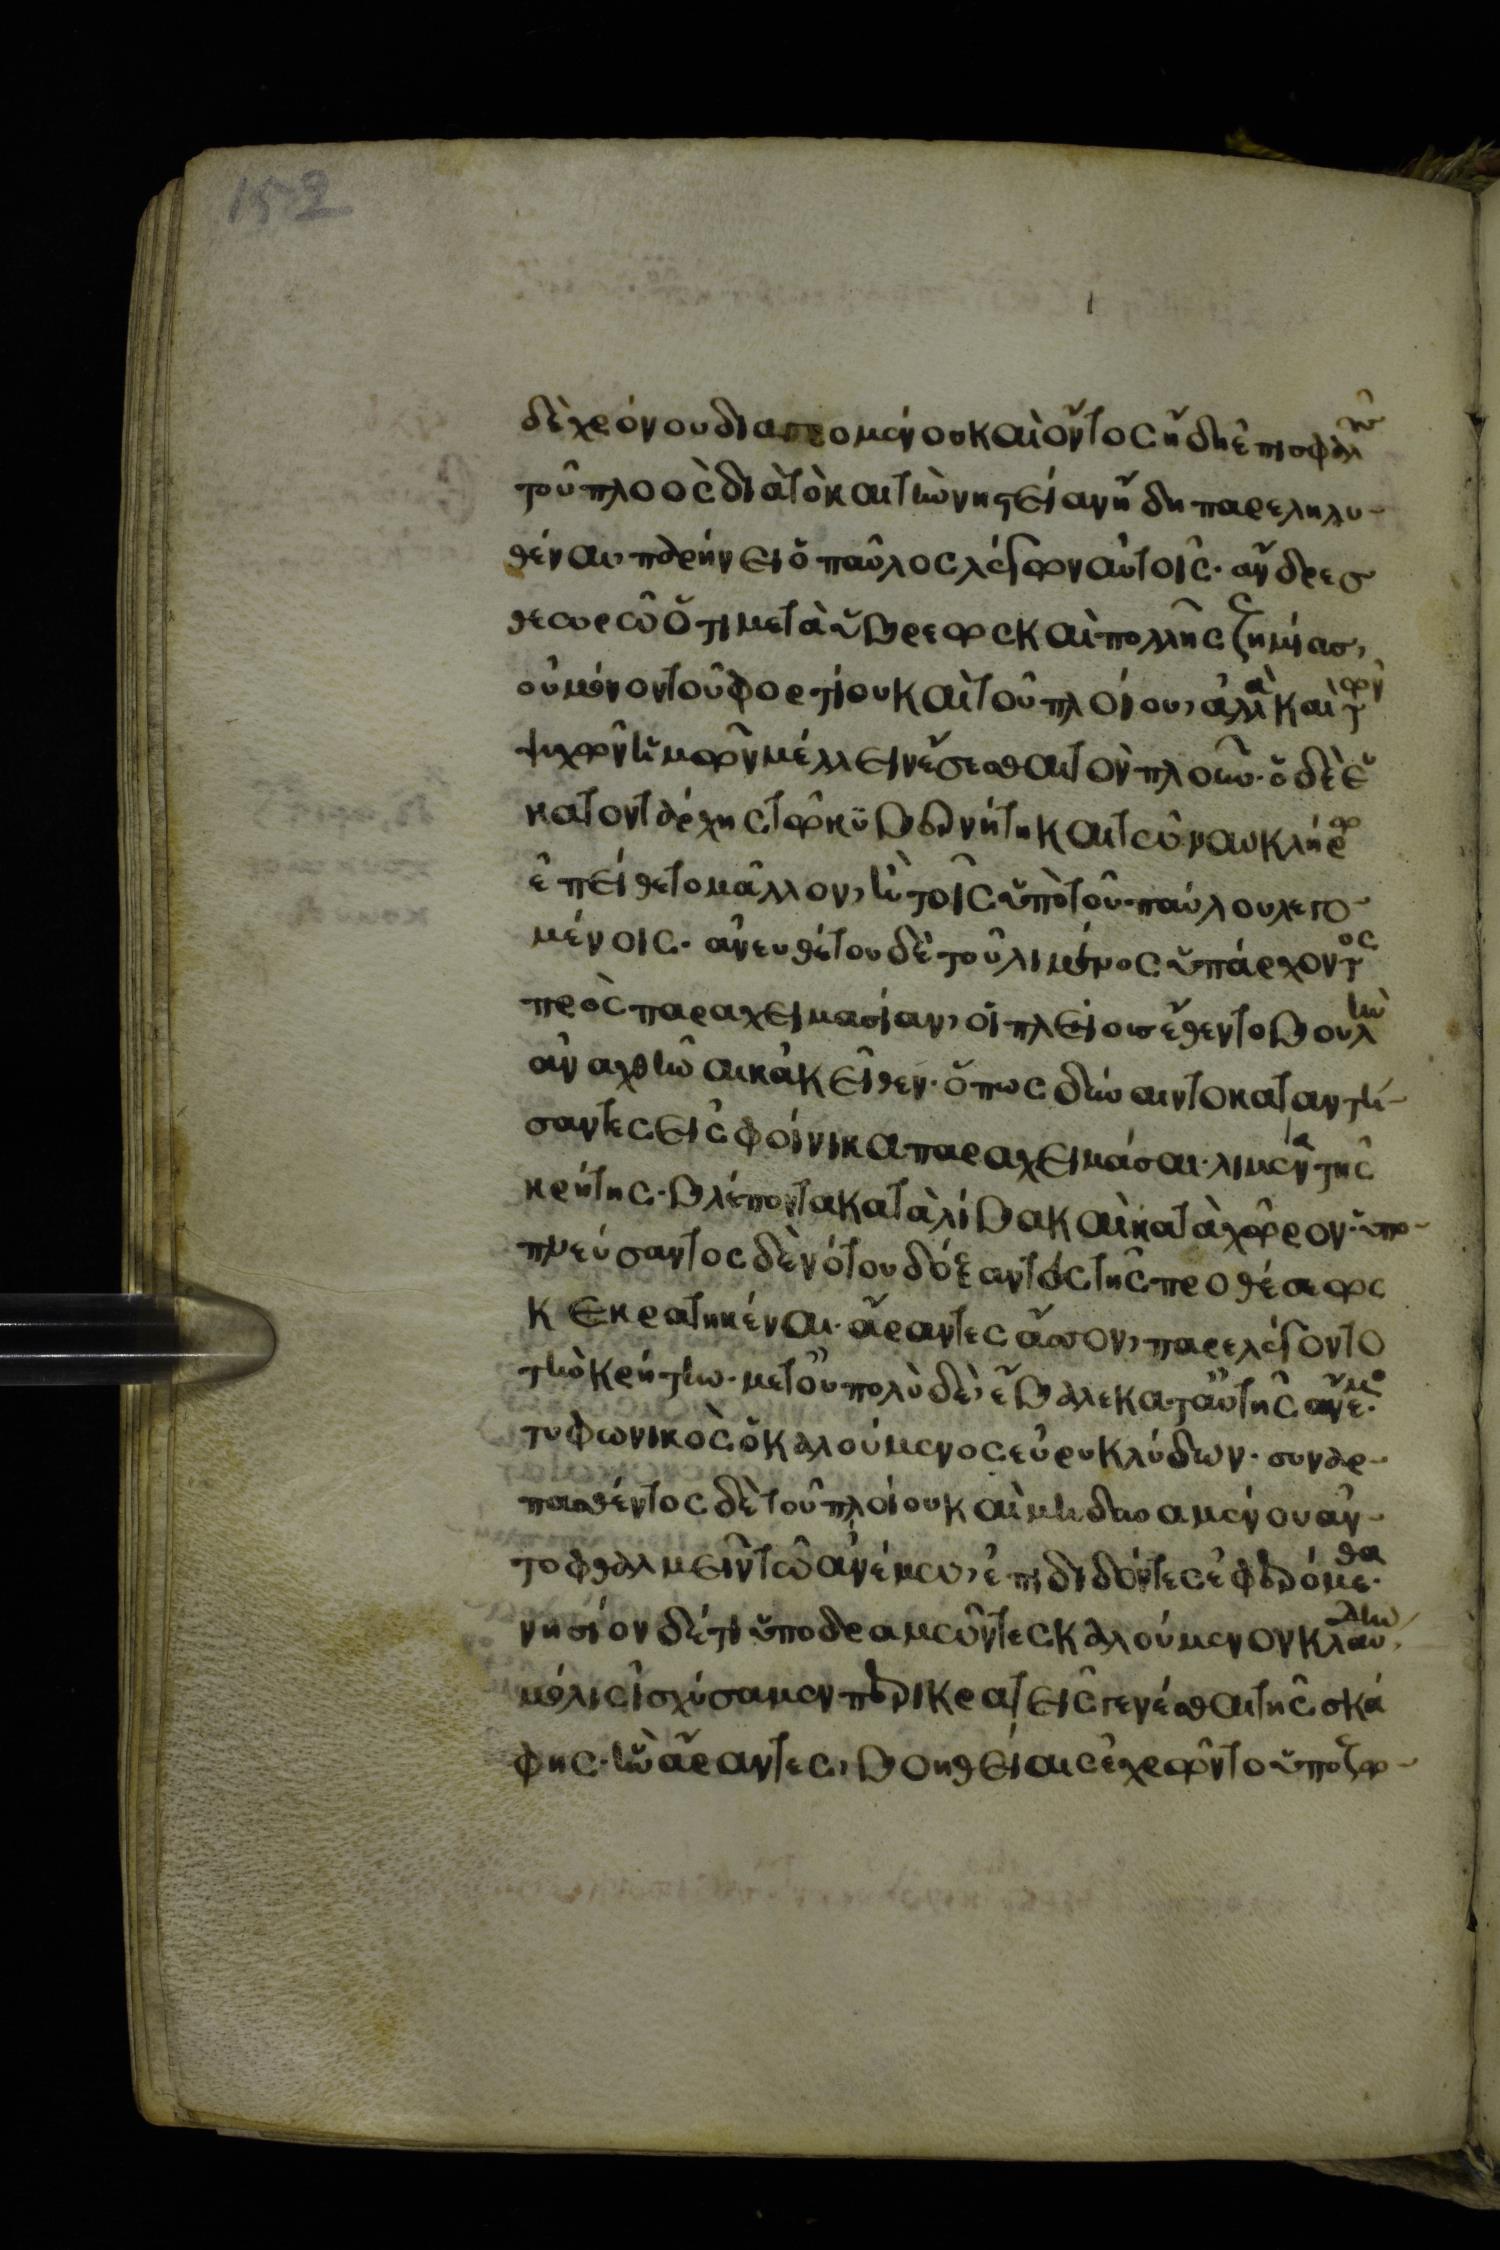 152
δὲ χρόνου διαγενομένου καὶ ὄντος ἤδη ἐπισφαλοῦς
τοῦ πλοὸς διὰ τὸ καὶ τὴν νηστείαν ἤδη παρεληλυ-
θέναι, παρήνει ὁ παῦλος λέγων αὐτοῖς· ἄνδρες
θεωρῶ ὅτι μετὰ ὕβρεως καὶ πολλῆς ζημίας,
οὐ μόνον τοῦ φορτίου καὶ τοῦ πλοίου, ἀλλὰ καὶ τῶν
ψυχῶν ἡμῶν μέλλειν ἔσεσθαι τὸν πλοῦν· ὁ δὲ ἑ
κατοντάρχης τῶ κυβερνήτη καὶ τῶ ναυκλήρω
ἐπείθετο μᾶλλον, ἢ τοῖς ὑπὸ τοῦ παύλου λεγο-
μένοις· ἀνευθέτου δὲ τοῦ λιμένος ὑπάρχοντος
πρὸς παραχειμασίαν, οἱ πλείους ἔθεντο βουλὴν
ἀναχθῆναι κἀκεῖθεν· ὅπως δύναιντο καταντή-
σαντες εἰς φοίνικα παραχειμάσαι· λιμένα τῆς
κρήτης· βλέποντα κατὰ λίβα καὶ κατὰ χῶρον· ὑπο-
πνεύσαντος δὲ νότου δόξαντες τῆς προθέσεως
κεκρατηκέναι· ἄραντες ἆσσον, παρελέγοντο
τὴν κρήτην· μετ οὐ πολὺ δὲ, ἔβαλε κατ αὐτῆς ἄνεμος
τυφωνικὸς ὁ καλούμενος εὐρυκλύδων· συναρ-
πασθέντος δὲ τοῦ πλοίου καὶ μὴ δυναμένου ἀν-
τοφθαλμεῖν τῶ ἀνέμω, ἐπιδιδόντες ἐφερόμεθα·
νησίον δέ τι ὑποδραμῶντες καλούμενον κλαύδην,
μόλις ἰσχύσαμεν περικρατεῖς γενέσθαι τῆς σκά
φης· ἣν ἄραντες, βοηθείαις ἐχρῶντο ὑποζω-